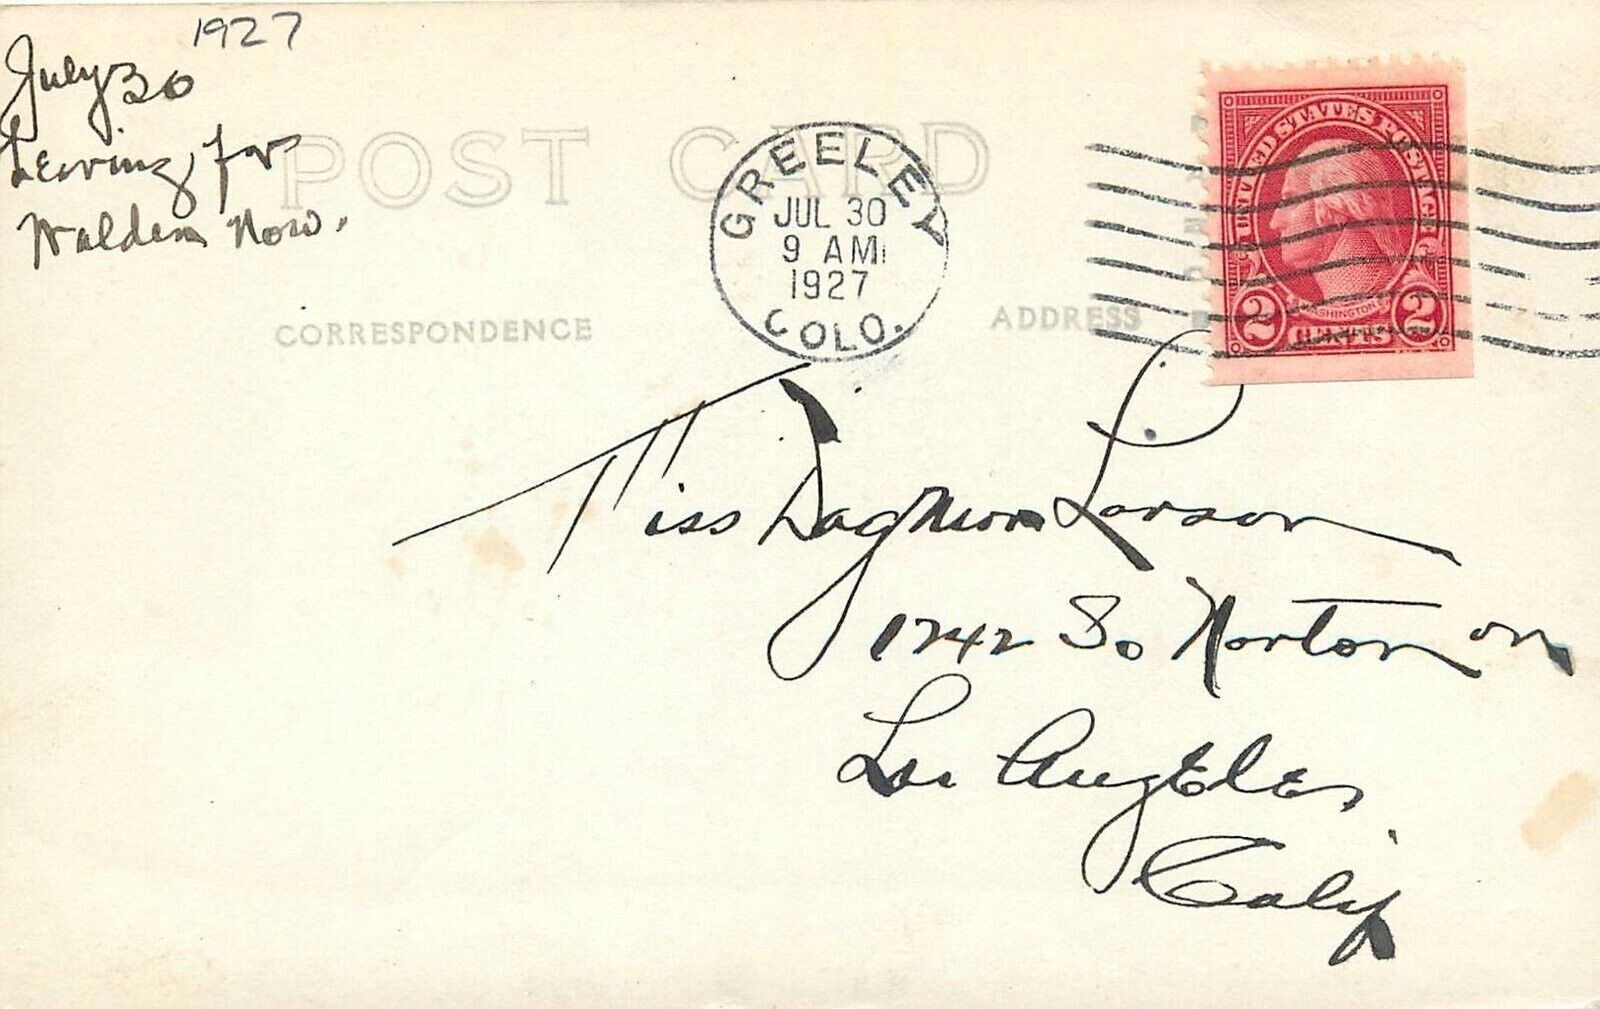 1927
July 30
Leaving for
Walden Now.
POST CARD
GREELEY
JUL 30
9 AM
1927
COLO.
UNITED STATES POSTAGE
WASHINGTON
2 CENTS 2
CORRESPONDENCE
ADDRESS
Miss Dagmar Larson
1242 So Norton
Los Angeles
Calif